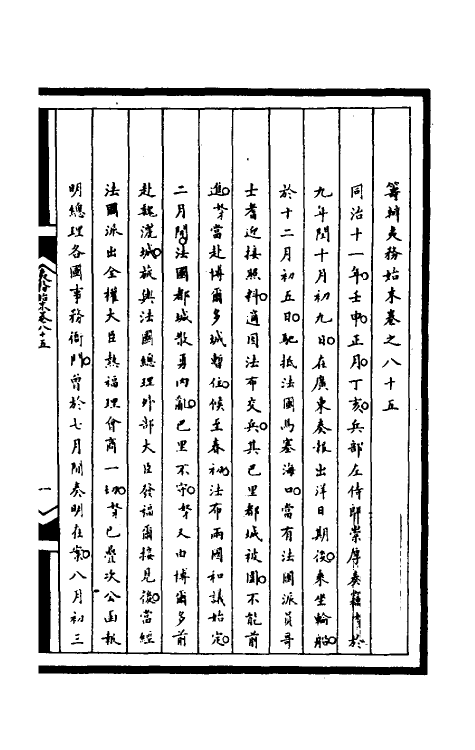 籌辦夷務始末卷之八十五
同治十一年壬申正月丁亥兵部左侍郎崇厚奏竊於
九年閏十月初九日在廣東奏報出洋日期後乘坐輪船
於十二月初五日馳抵法國馬塞海口當有法國派員哥
士耆迎接照料適因法布交兵其巴里都城被圍不能前
進當赴博爾多城暫住候至春初法布兩國和議始定
二月間法國都城散勇內亂巴里不守又由博爾多前
赴魏灑城旅與法國總理外部大臣發福爾接見後當經
法國派出全權大臣熱福理會商一切已疊次公函報
明總理各國事務衙門曾於七月間奏明在案八月初三
夷務始末卷八十五
一